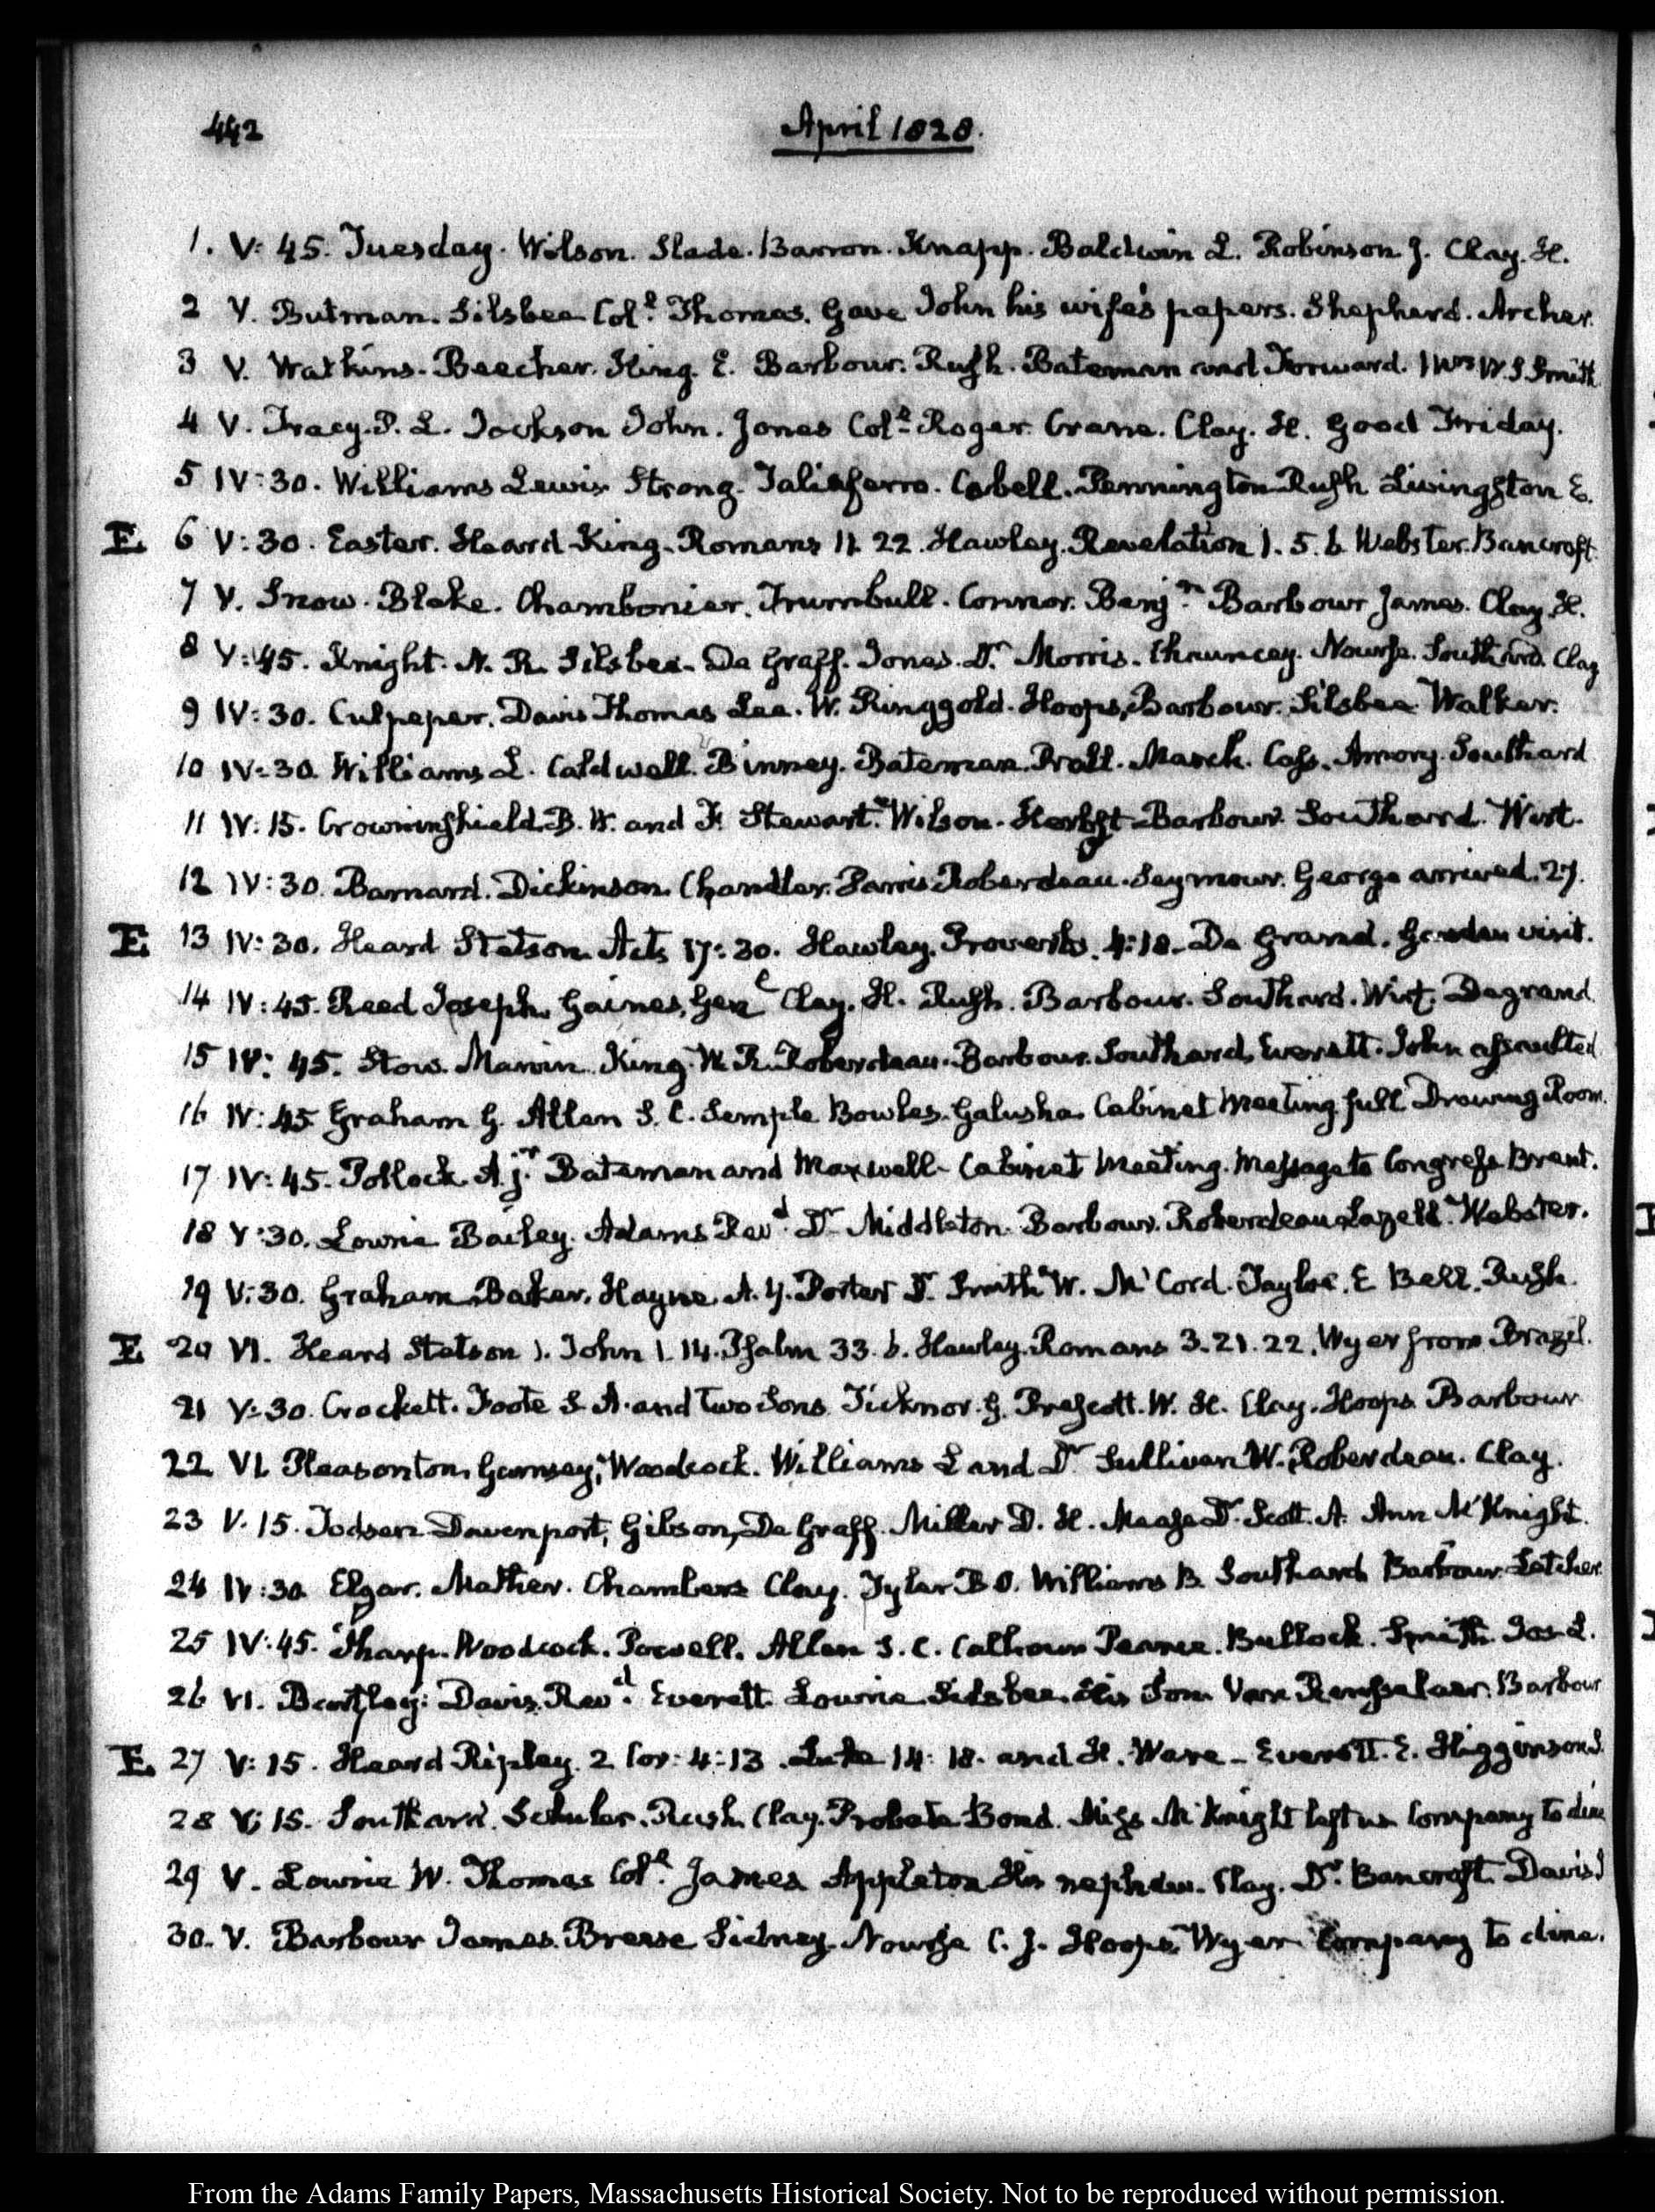 442
April 1828.
1. V: 45. Tuesday. Wilson. Slade. Barron. Knapp. Baldwin L. Robinson J. Clay. H.
2 V. Butman. Silsbee Col.l Thomas. Gave John his wife's papers. Shepherd. Archer.
3 V. Watkins. Beecher. King. E. Barbour. Rush. Bateman and Forward. Mrs W. S Smith
4 V. Tracy. P. L. Jackson John. Jones Col.l Roger. Crane. Clay. H. Good Friday.
5 IV: 30. Williams Lewis Strong. Taliaferro. Cabell. Pennington Rush Livingston E.
E. 6 V: 30. Easter. Heard King. Romans 11. 22. Hawley. Revelation 1. 5. 6 Webster. Bancroft.
7 V. Snow. Blake. Chambonier. Trumbull. Connor. Benj.n Barbour James. Clay. H.
8 V: 45. Knight. N. R. Silsbee. De Graff. Jones. Dr Morris. Chauncey. Nourse. Southard. Clay
9 IV: 30. Culpeper. Davis Thomas Lee. W. Ringgold. Hoops, Barbour. Silsbee Walker.
10 IV: 30. Williams L. Caldwell. Binney. Bateman. Proll. March. Cass. Amory. Southard
11 IV: 15. Crowninshield. B. W. and F. Stewart. Wilson. Barbour. Southard. Wirt.
12 IV: 30. Barnard. Dickinson. Chandler. Parris Roberdeau. Seymour. George arrived. 27.
E. 13 IV: 30. Heard Stetson. Acts 17: 30. Hawley. Proverbs. 4: 18. De Grand. Garden visit.
14 IV: 45. Reed Joseph. Gaines, Genl Clay. H. Rush. Barbour. Southard. Wirt. Degrand.
15 IV: 45. Stow. Marvin. King. W. R. Roberdeau. Barbour. Southard, Everett. John assaulted
16 IV: 45 Graham G. Allen S. C. Semple Bowles. Galusha. Cabinet Meeting. full Drawing Room.
17 IV: 45. Pollock A. jr Bateman and Maxwell. Cabinet Meeting. Message to Congress Brent.
18 V: 30. Lowrie Bailey. Adams Revd. Dr Middleton. Barbour. Roberdeau Lazell. Webster.
19 V: 30. Graham. Baker. Hayne A. P. Porter Dr Smith W. McCord. Tayloe. E Bell. Rush.
E. 20 VI. Heard Stetson 1. John 1. 14. Psalm 33. 6. Hawley. Romans 3. 21. 22. Wyer from Brazil.
21 V: 30. Crockett. Foote S. A. and two Sons. Ticknor. G. Prescott. W. H. Clay. Hoops. Barbour
22 VI Pleasonton, Gurnsey, Woodcock. Williams L and Dr Sullivan W. Roberdeau. Clay.
23 V. 15. Davenport, Gibson, De Graff. Miller D. H. Mease Dr. Scott. A. Ann McKnight.
24 IV: 30 Elgar. Mather. Chambers Clay. Tyler B O. Williams B. Southard Barbour. Letcher.
25 IV: 45. Tharp. Woodcock. Powell. Allen S. C. Calhoun Pearce. Bullock. Smith. Jos L.
26 VI. Bartley: Davis. Revd. Everett. Lowrie Silsbee. His Son. Van Rensselaer. Barbour
E. 27 V: 15. Heard Ripley. 2 Cor: 4: 13. Luke 14: 18. and H. Ware. Everett. E. Higginson S.
28 V: 15. Southard. Schuler. Rush. Clay. Probate Bond. Miss McKnight left us Company to dine
29 V. Lowrie W. Thomas Col.l James Appleton His nephew. Clay. Dr. Bancroft. Davis J
30. V. Barbour James. Breese Sidney. Nourse C. J. Hoops. Wyer Company to dine.
From the Adams Family Papers, Massachusetts Historical Society. Not to be reproduced without permission.